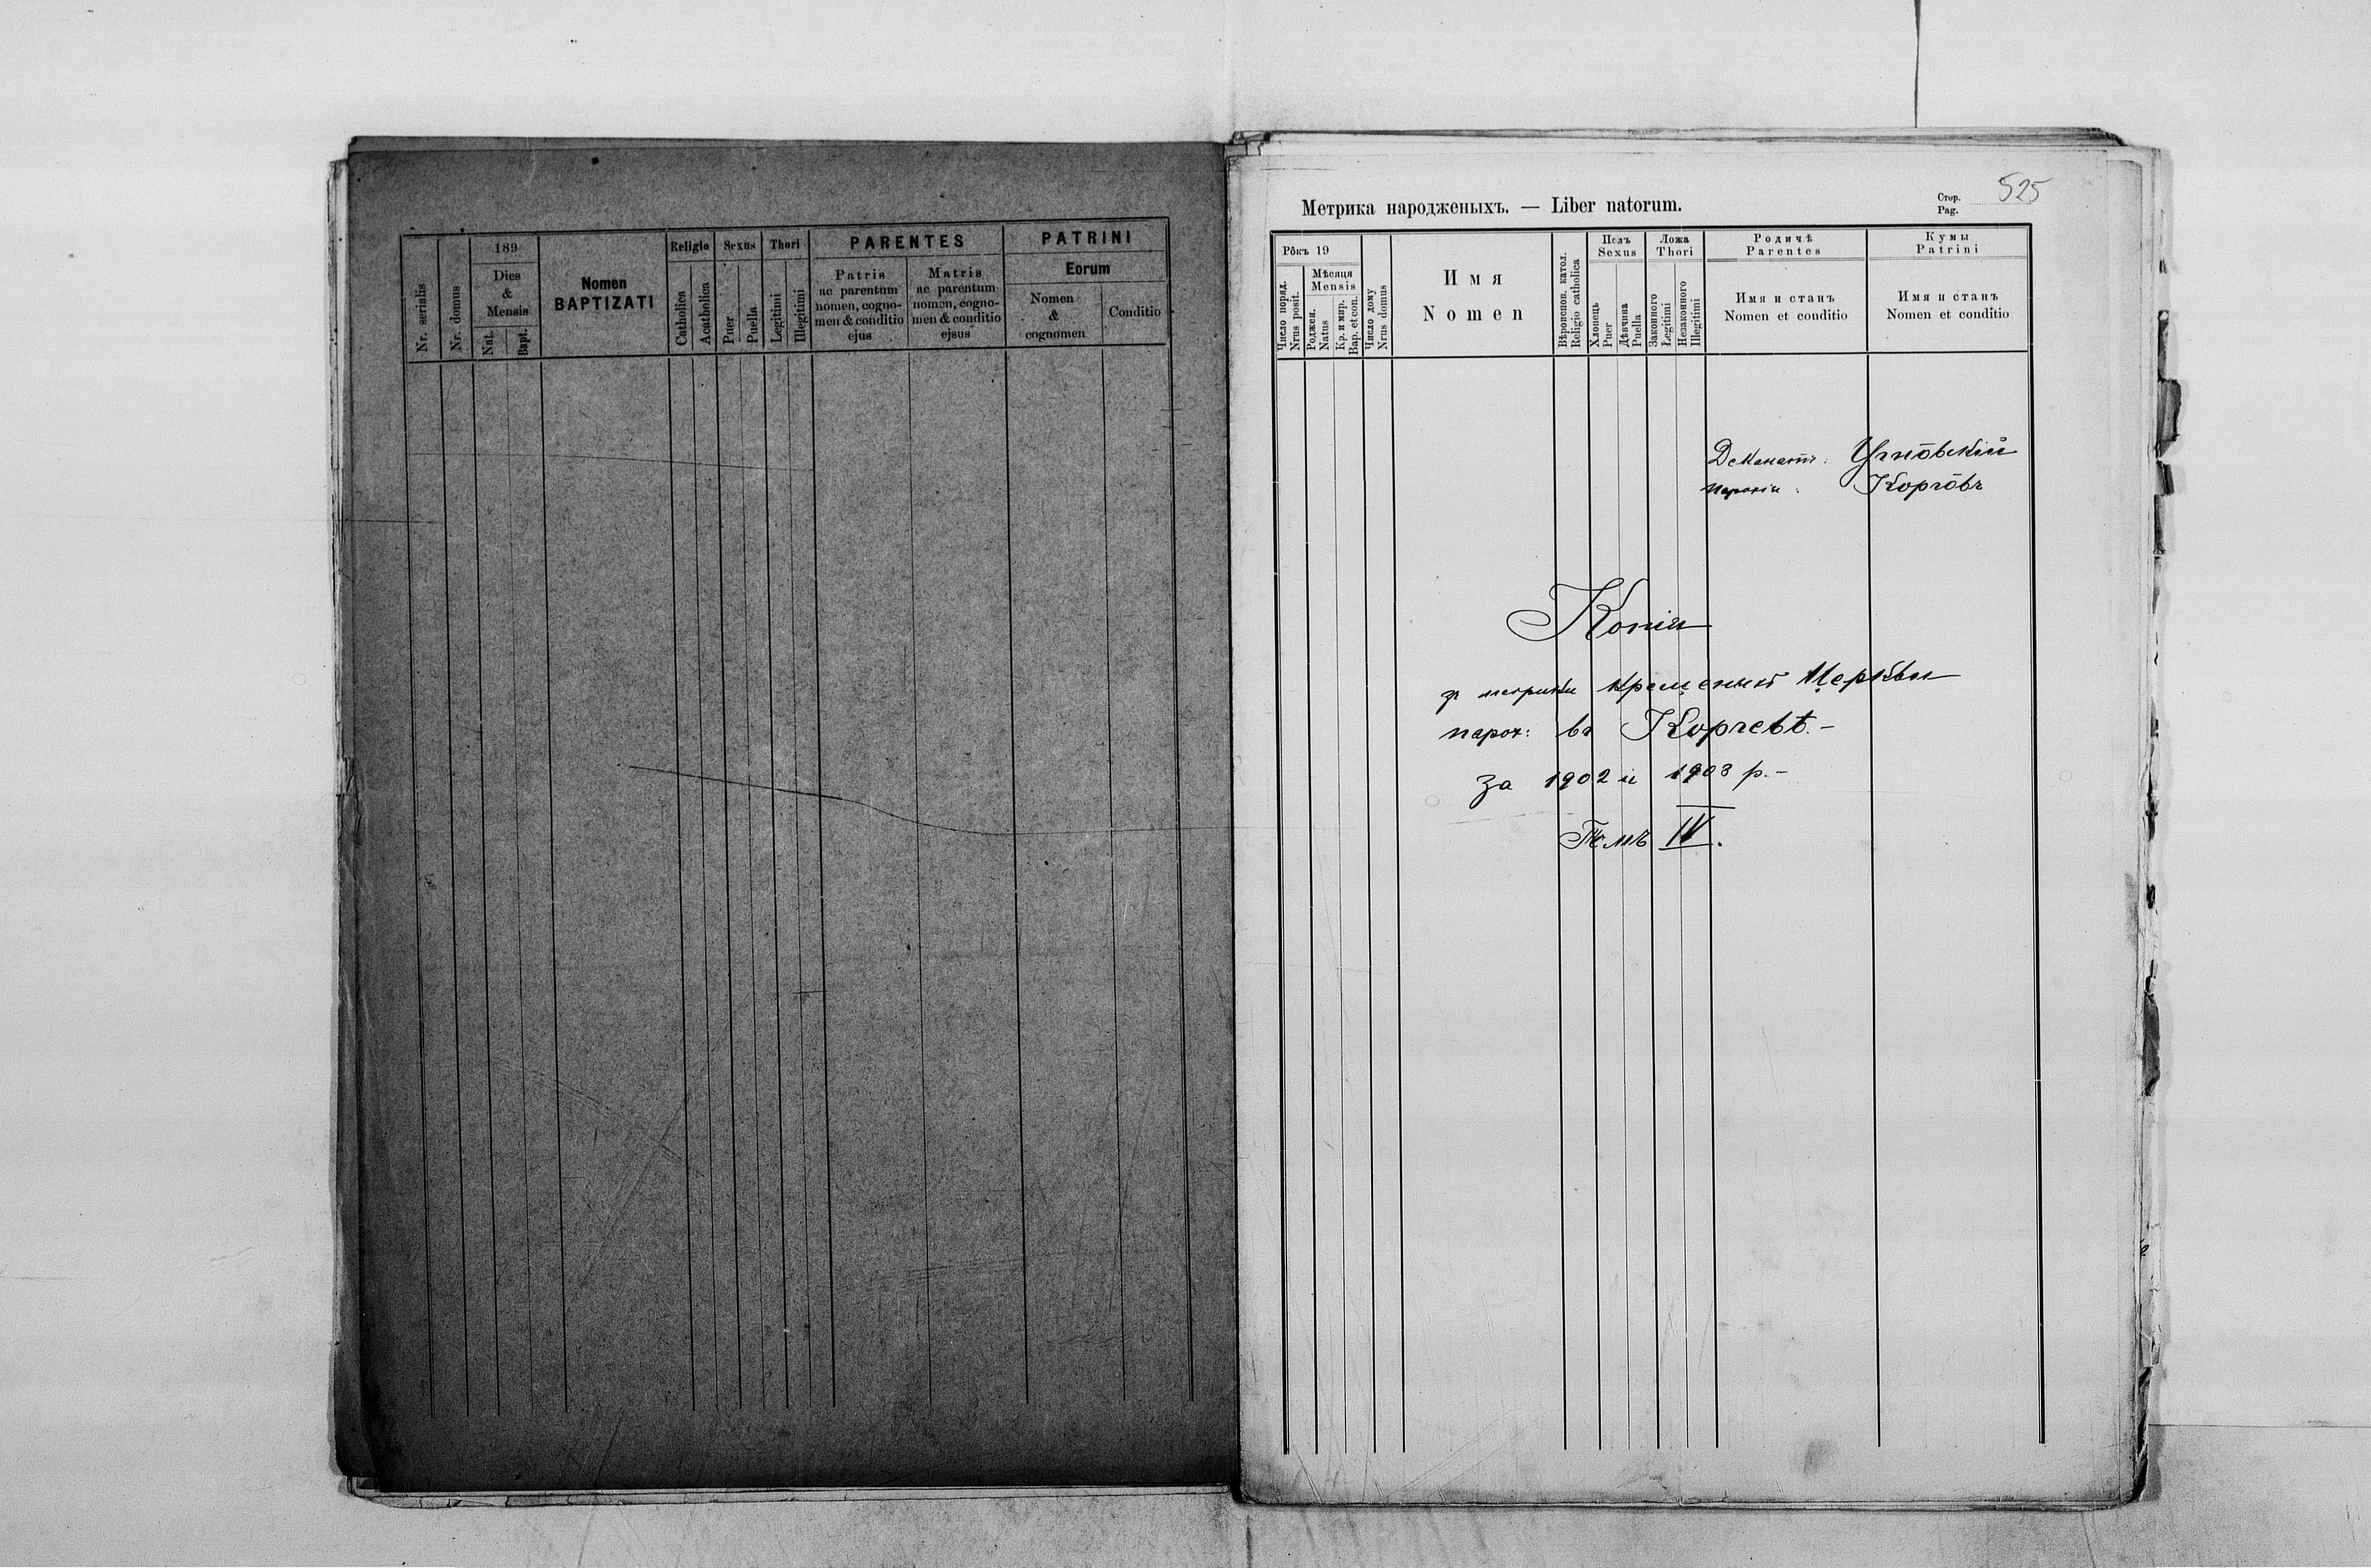 189
Religio Sexus Thori PARENTES PATRINI
Nr. serialis
Nr. domus
Dies
&
Mensis
Nat.
Bapt.
Nomen
BAPTIZATI
Catholica
Acatholica
Puer
Puella
Legitimi
Illegitimi
Patris
ac parentum
nomen, cogno-
men & conditio
ejus
Matris
ac parentum
nomen, cogno-
men & conditio
ejsus
Eorum
Nomen
&
cognomen
Conditio
Метрика народженыхъ. — Liber natorum.
Стор.
Pag.
525
Рôкъ 19
Число поряд.
Nrus posit.
Мѣсяця
Mensis
Роджен.
Natus
Кр. и мир.
Bap. et con.
Число дому
Nrus domus
Имя
Nomen
Вѣроиспов. катол.
Religio catholica
Полъ
Sexus
Хлопець
Puer
Дѣвчина
Puella
Ложа
Thori
Законного
Legitimi
Незаконного
Illegitimi
Родичѣ
Parentes
Имя и станъ
Nomen et conditio
Кумы
Patrini
Имя и станъ
Nomen et conditio
Деканатъ: Угнôвскій
Парохія: Корчôвъ
Копія
метрики крещеных Церкви
парох: въ Корчевѣ.-
За 1902 и 1903 р.-
Томъ IV.